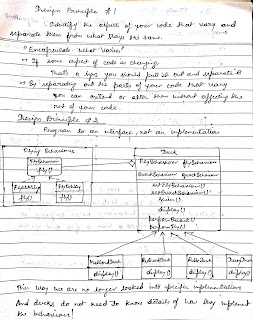 Design Principle #1
Identify the aspects of your code that vary and
separate them from what stays the same.
"Encapsulate what varies"
→ If some aspect of code is changing
That's a sign you should pull it out and separate it
→ By separating out the parts of your code that vary
you can extend or alter them without affecting the
rest of your code.
Design Principle #2
Program to an interface, not an implementation
Flying Behaviour
FlyBehaviour
fly()
fly()
fly()
Duck
FlyBehaviour flyBehaviour
QuackBehaviour quackBehaviour
setFlyBehaviour()
setQuackBehaviour()
swim()
display()
performQuack()
performFly()
MallardDuck
display()
display()
display()
display()
This way we are no longer locked into specific implementations
And ducks do not need to know details of how they implement
the behaviours!